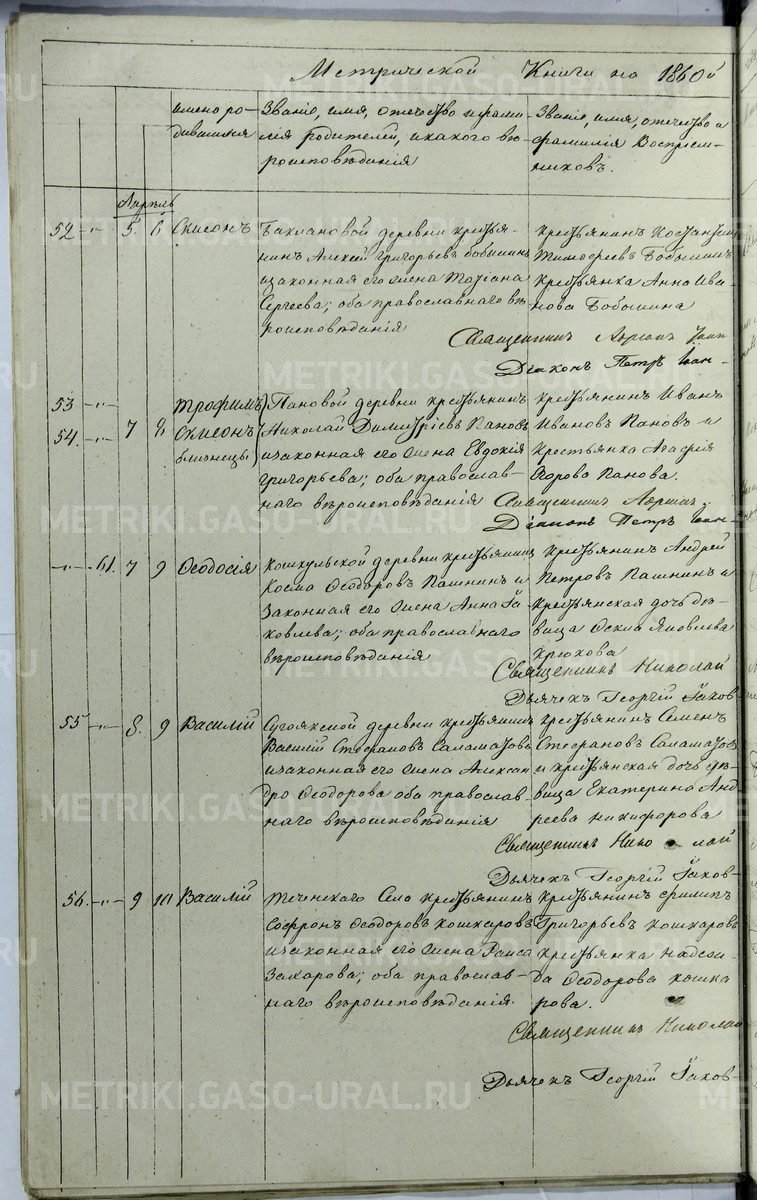 Метрической Книги на 1860й
имена родившихся
Званіе, имя, отчество и фамилія родителей, и какого вѣроисповѣданія
Званіе, имя, отчество и фамилія Воспріемниковъ.
Апрѣль
52 -"- 5 6 Симеонъ
Баклановой деревни крестья-
нинъ Алексей Григорьевъ Бобыкинъ
и законная его жена Татіана
Сергеева; оба православнаго вѣ-
роисповѣданія
крестьянинъ
Тимофеевъ Бобыкинъ
крестьянка Анна Ива-
нова Бобыкина
Священникъ
Діаконъ Петръ
53 -"-
54 -"- 7 8
Трофимъ
Симеонъ
близнецы
Пановой деревни крестьянинъ
Николай Димитріевъ Пановъ
и законная его жена Евдокія
Григорьева; оба православ-
наго вѣроисповѣданія
крестьянинъ Иванъ
Ивановъ Пановъ и
Крестьянка Агафія
Егорова Панова.
Священникъ
Діаконъ Петръ
-"- 61. 7 9 Ѳеодосія
Кошкульской деревни крестьянинъ
Косма Ѳеодоровъ Пашнинъ и
Законная его жена Анна Іа-
ковлева; оба православнаго
вѣроисповѣданія
крестьянинъ Андрей
Петровъ Пашнинъ и
крестьянская дочь дѣ-
вица Яковлева
крюкова
Священникъ Николай
Дьячекъ Георгій Іаков-
55 -"- 8. 9 Василій
Сугоякской деревни крестьянинъ
Василій Стефановъ Саламатовъ
и законная его жена Алексан
дра Ѳеодорова оба православ-
наго вѣроисповѣданія
крестьянинъ Семенъ
Стефановъ Саламатовъ
и крестьянская дочь дѣ-
вица Екатерина Анд
реева никифорова
Священникъ Николай
Дьячекъ Георгій Іаков-
56. -"- 9 10 Василій
Теченскаго Села крестьянинъ
Софронъ Ѳеодоровъ кошкаровъ
и законная его жена Раиса
Захарова; оба православ-
наго вѣроисповѣданія.
крестьянинъ филипъ
Григорьевъ кошкаровъ
крестьянка Надеж-
да Ѳеодорова кошка
рова.
Священникъ Николай
Дьячекъ Георгій Іаков-
METRIKI.GASO-URAL.RU